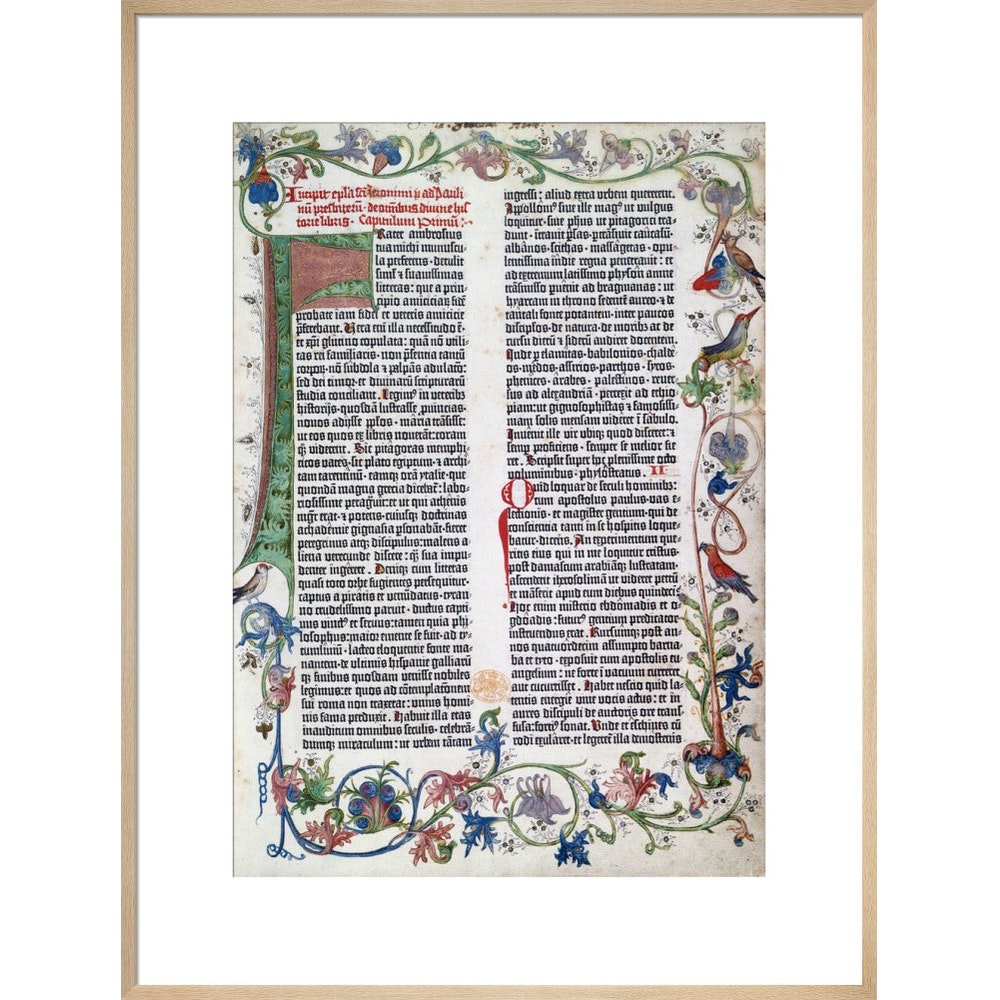 Incipit epl̃a sc̃i Jeronimi p̃ ad Pauli
nũ presbiterũ · de omnibus divine his
torie libris · Capitulum Primũ:·
Frater ambrosius
tua michi munuscu
la perferens · detulit
simĺ ⁊ suavissimas
litteras: que a prin
cipio amiciciaȝ fidẽ
probate iam fidei ⁊ veteris amicicie
p̃ferebant. Vera em̃ illa necessitudo ẽ·
et xp̃i glutino copulata: quã nõ utili
tas rei familiaris · non p̃sentia tantũ
corpoȝ · nõ subdola ⁊ palpãs adulacõ·
sed dei timor · et divinaȝ scripturarũ
studia conciliant. Legim⁹ in veterib⁹
historijs · quosdã lustrasse ꝓuincias·
novos adijsse ꝓp̃los · maria trãsisse·
ut eos quos ex libris noverãt: coram
q̃ȝ viderent. Sic pitagoras memphi
ticos vates · sic plato egiptum · ⁊ archi
tam tarentinũ · eamqȝ orã ytalie · que
quondã magna grecia diceba᷑: labo
riosissime peragravit: et ut qui athenis
mgr̃ erat · ⁊ potens · cuiusqȝ doctrinas
achademie gignasia ꝑsonabãt · fieret
peregrinus atqȝ discipulus: malens a
liena verecunde discere: q̃ȝ sua impu
denter ingerere. Deniqȝ cum litteras
quasi toto orbe fugientes persequitur·
captus a piratis et venũdatus · tyran
no crudelissimo paruit · ductus capti
vus vinct⁹ et servus: tamen quia phi
losophus: maior emente se fuit · ad ty
tumlivium · lacteo eloquentie fonte ma
nantem · de ultimis hispanie galliarũ
qȝ finibus quosdam venisse nobiles
legimus: et quos ad cõtemplacionem
sui roma non traxerat: unius homi
nis fama perduxit. Habuit illa etas
inauditum omnibus seculis · celebrã
dumqȝ miraculum: ut urbem tãtam
ingressi: aliud extra urbem quererent.
Apolloni⁹ sive ille mag⁹ ut vulgus
loquitur · sive ph̃us ut pitagorici tra
dunt · intravit ꝑsas · ꝑtransivit caucasũ
albanos · scithas · massagetas · opu
lentissima indie regna penetravit: et
ad extremum latissimo physon amne
transmisso ꝑvenit ad bragmanas: ut
hyarcam in throno sedente aureo · ⁊ de
tantali fonte potantem · inter paucos
discipłos · de natura · de moribȝ ac de
cursu dierũ ⁊ siderũ audiret docentem.
Inde ꝑ elamitas · babilonios · chalde
os · medos · assirios · parthos · syros·
phenices · arabes · palestinos · rever
sus ad alexandriã · perrexit ad ethio
piam: ut gignosophistas ⁊ famosissi
mam solis mensam videret ĩ sabulo.
Invenit ille vir ubiqȝ quod disceret: ⁊
semꝑ proficiens · semper se melior fie
ret. Scripsit super hoc plenissime octo
voluminibus · phylostratus. II
Quid loquar de seculi hominibȝ:
cum apostolus paulus · vas e
lectionis · et magister gentium · qui de
conscientia tanti in se hospitis loque
batur · dicens. An experimentum que
ritis eius qui in me loquitur cristus·
post damascum arabiãqȝ lustratam·
ascenderit iherosolimã ut videret petrũ
⁊ mãserit apud eum diebus quindeci.
Hoc enim misterio ebdomadis et o
gdoadis: futur⁹ gentium predicator
instruendus erat. Rursumqȝ post an
nos quatuordecim assumpto barna
ba et tyto · exposuit cum apostolis eu
angelium: ne forte ĩ vacuum curreret
aut cucurrisset. Habet nescio quid la
tentis energie vive vocis actus: et in
aures discipuli de auctoris ore trans
fusa: forti⁹ sonat. Unde et eschines cũ
rodi exularet · et legeretur illa demostenis